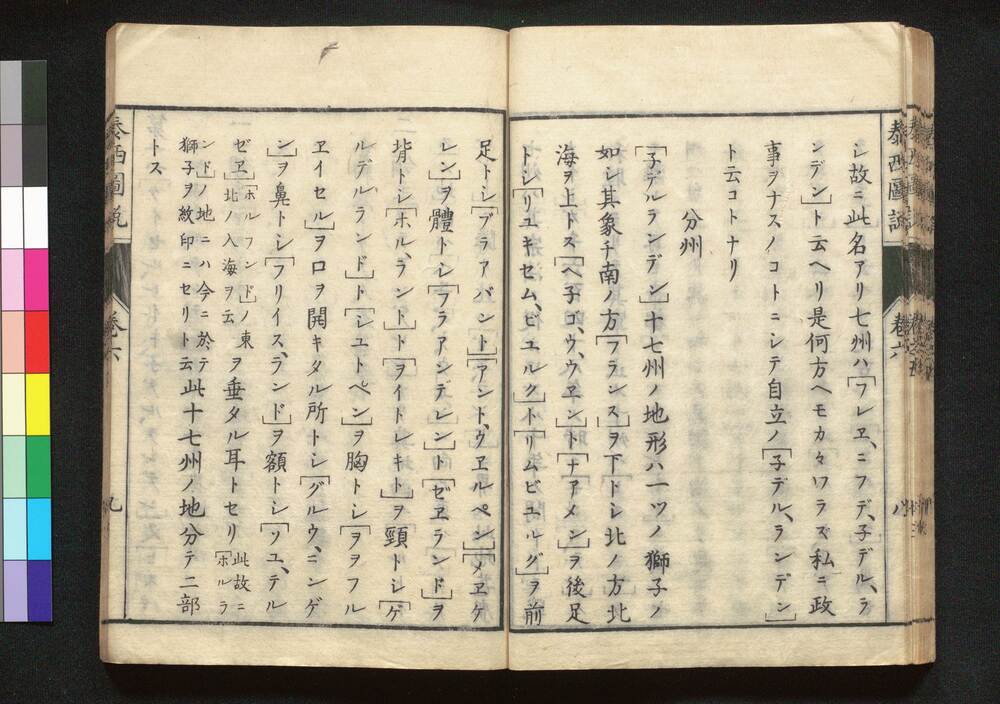 シ故ニ此名アリ七州ハ「フレヱ、ニフデ、子デル、ラ
ンデン」ト云ヘリ是何方ヘモカヽワラズ私ニ政
事ヲナスノコトニシテ自立ノ「子デル、ランデン」
ト云コトナリ
分州
「子デルランデン」十七州ノ地形ハ一ツノ獅子ノ
如シ其象チ南ノ方「フランス」ヲ下トシ北ノ方北
海ヲ上トス「ヘ子ゴ、ウ、ウヱン」ト「ナアメン」ヲ後足
トシ「リユキセム、ビエルク」ト「リムビユルグ」ヲ前
足トシ「ブラアバント」「アント、ウヱルペン」「メヱケ
レン」ヲ體トシ「フラアンデレン」ト「ゼヱランド」ヲ
背トシ「ホル、ラント」ト「ヲイトレキト」ヲ頸トシ「ゲ
ルデルランド」ト「シユトペン」ヲ胸トシ「ヲヲフル
ヱイセル」ヲ口ヲ開キタル所トシ「グルウ、ニンゲ
ン」ヲ鼻トシ「フリイス、ランド」ヲ額トシ「ソユ、テル
ゼヱ」「ホルフンド」ノ東北ノ入海ヲ云ヲ垂タル耳トセリ此故ニ「ホルラ
ンド」ノ地ニハ今ニ於テ獅子ヲ紋印ニセリト云此十七州ノ地分テ二部
トス
泰西圖説
卷六
八
泰西圖説
卷六
九